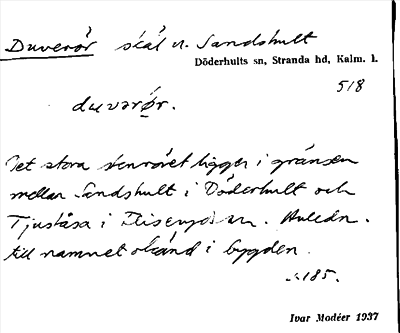 Duverör skäl n. Sandshult
Döderhults sn, Stranda hd, Kalm. l.
5/8
duvarør.
Det stora stenröset ligger i gränsen
mellan Sandshult i Döderhult och
Tjuståsa i n. Anledn.
till namnet okänd i bygden.
s. 185.
Ivar Modéer 1937